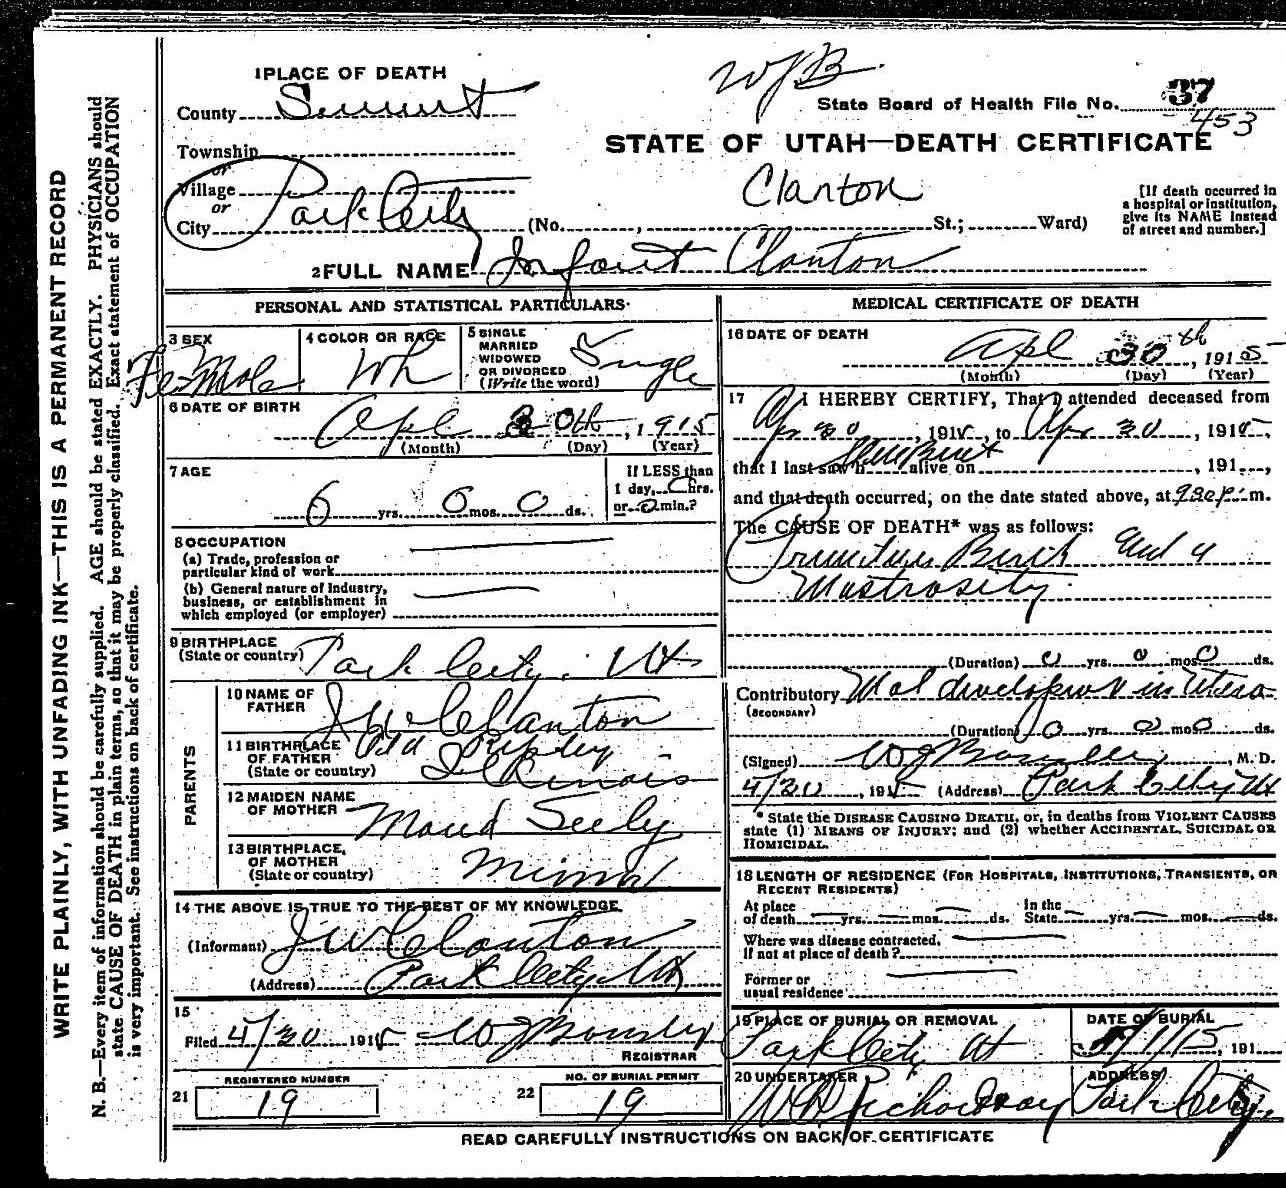 WRITE PLAINLY, WITH UNFADING INK—THIS IS A PERMANENT RECORD
N. B.—Every item of information should be carefully supplied. AGE should be stated EXACTLY. PHYSICIANS should
state CAUSE OF DEATH in plain terms, so that it may be properly classified. Exact statement of OCCUPATION
is very important. See instructions on back of certificate.
1 PLACE OF DEATH
WJB
County Summit
State Board of Health File No. 37
453
STATE OF UTAH—DEATH CERTIFICATE
Township
or
Village
or
City Park City (No. , St.; Ward)
Clanton
[If death occurred in
a hospital or institution,
give its NAME instead
of street and number.]
2 FULL NAME Infant Clanton
PERSONAL AND STATISTICAL PARTICULARS
3 SEX
FeMale
4 COLOR OR RACE
Wh
5 SINGLE
MARRIED
WIDOWED
OR DIVORCED
(Write the word)
Single
6 DATE OF BIRTH
Apl 30th, 1915
(Month) (Day) (Year)
7 AGE
0 yrs. 0 mos. 0 ds.
If LESS than
1 day, 0 hrs.
or 0 min.?
8 OCCUPATION
(a) Trade, profession or
particular kind of work
(b) General nature of industry,
business, or establishment in
which employed (or employer)
9 BIRTHPLACE
(State or country) Park City, Ut
PARENTS
10 NAME OF
FATHER J W Clanton
11 BIRTHPLACE
OF FATHER
(State or country) Illinois
12 MAIDEN NAME
OF MOTHER Maud Seely
13 BIRTHPLACE,
OF MOTHER
(State or country)
14 THE ABOVE IS TRUE TO THE BEST OF MY KNOWLEDGE
(Informant) J W Clanton
(Address) Park City, Ut
15
Filed 4/30 1915
REGISTRAR
REGISTERED NUMBER
21 19
NO. OF BURIAL PERMIT
22 19
MEDICAL CERTIFICATE OF DEATH
16 DATE OF DEATH
Apl 30th, 1915
(Month) (Day) (Year)
17 I HEREBY CERTIFY, That I attended deceased from
Apr 30, 1915, to Apr 30, 1915,
that I last saw h alive on , 191 ,
and that death occurred, on the date stated above, at m.
The CAUSE OF DEATH* was as follows:
Birth and a
Mostrosity
(Duration) 0 yrs. 0 mos. 0 ds.
Contributory Mal in Utero
(SECONDARY)
(Duration) 0 yrs. 0 mos. 0 ds.
(Signed) , M. D.
4/30, 1915 (Address) Park City Ut
* State the DISEASE CAUSING DEATH, or, in deaths from VIOLENT CAUSES
state (1) MEANS OF INJURY; and (2) whether ACCIDENTAL, SUICIDAL OR
HOMICIDAL.
18 LENGTH OF RESIDENCE (FOR HOSPITALS, INSTITUTIONS, TRANSIENTS, OR
RECENT RESIDENTS)
At place
of death yrs. mos. ds.
In the
State yrs. mos. ds.
Where was disease contracted,
If not at place of death?
Former or
usual residence
19 PLACE OF BURIAL OR REMOVAL
Park City Ut
DATE OF BURIAL
5/1/15, 191
20 UNDERTAKER
ADDRESS
Park City
READ CAREFULLY INSTRUCTIONS ON BACK OF CERTIFICATE